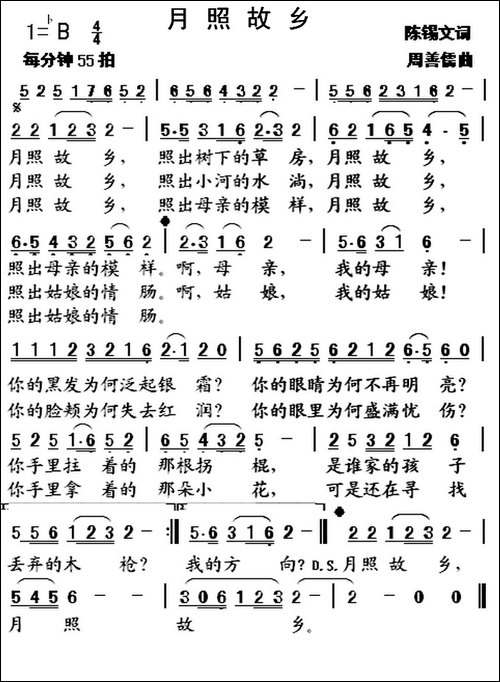 月照故乡
1=♭B 4/4 陈锡文词
每分钟55拍 周善儒曲
5 2 5 1 7 6 5 2 | 6 5 6 4 3 2 2 - | 5 5 5 6 1 2 2 - |
2 2 1 2 3 2 - | 5·5 3 1 6 1 2·3 2 | 6 2 1 6 5 4·5 |
月照故乡, 照出树下的草房,月照故乡,
月照故乡, 照出小河的水淌,月照故乡,
月照故乡, 照出母亲的模样,月照故乡,
6·5 4 3 2 5 6 2 | 2·3 1 6 2 - | 5·6 3 1 6 - |
照出母亲的模样。啊,母亲, 我的母亲!
照出姑娘的情肠。啊,姑娘, 我的姑娘!
照出姑娘的情肠。
1 1 1 2 3 2 1 6 2·1 2 0 | 5 6 2 5 6 1 2 6·5 6 0 |
你的黑发为何泛起银霜? 你的眼睛为何不再明亮?
你的脸颊为何失去红润? 你的眼里为何盛满忧伤?
5 2 5 1·6 5 2 | 6 5 4 3 2 5 - | 2 5 3 2 1 2 6 5 |
你手里拄着的那根拐棍, 是谁家的孩子
你手里拿着的那朵小花, 可是还在寻找
5 5 6 1 2 3 2 - :‖ 5·6 3 1 6 2 - ‖ 2 2 1 2 3 2 - |
丢弃的木枪? 我的方向? D.S.月照故乡,
5 4 5 6 6 - - | 3 0 6 1 2 3 2 - | 2 - 0 0 ‖
月照故乡。